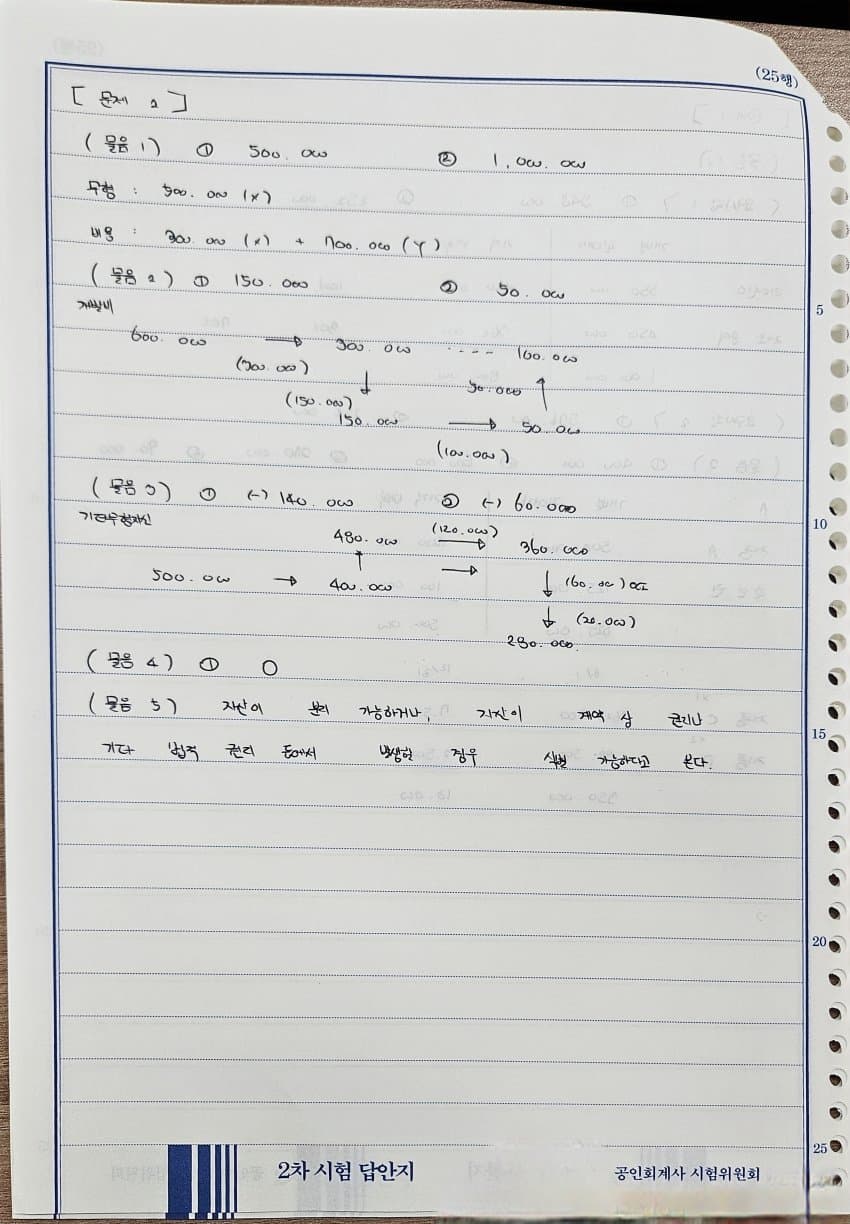 (25행)
[ 문제 2 ]
(물음 1) ① 500.000 ② 1,000.000
무형 : 500.000 (X)
비용 : 300.000 (X) + 700.000 (Y)
(물음 2) ① 150.000 ② 50.000
개발비
600.000 → 300.000 ---- 100.000
(300.000) ↓ 50.000 ↑
(150.000)
150.000 → 50.000
(100.000)
(물음 3) ① (-) 140.000 ② (-) 60.000
기타무형자산
480.000 (120.000) → 360.000
500.000 → 400.000 → (60.000) OCI
↓ (20.000)
280.000
(물음 4) ① O
(물음 5) 자산이 분리 가능하거나, 자산이 계약 상 권리나
기타 법적 권리 등에서 발생한 경우 식별 가능하다고 본다.
5
10
15
20
25
2차 시험 답안지
공인회계사 시험위원회